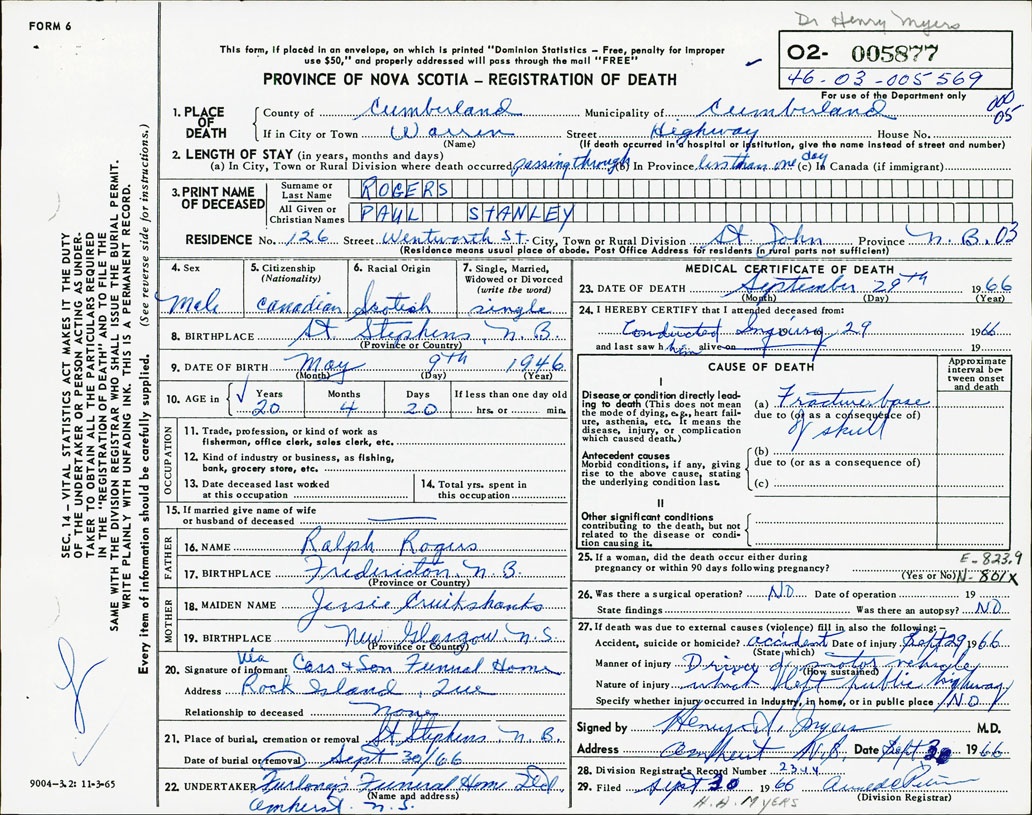 FORM 6
Dr Henry Myers
This form, if placed in an envelope, on which is printed "Dominion Statistics – Free, penalty for improper
use $50," and properly addressed will pass through the mail "FREE"
PROVINCE OF NOVA SCOTIA – REGISTRATION OF DEATH
02- 005877
46-03-005569
For use of the Department only
000
05
1. PLACE OF DEATH
County of Cumberland Municipality of Cumberland
If in City or Town Warren Street Highway House No.
(Name) (If death occurred in a hospital or institution, give the name instead of street and number)
2. LENGTH OF STAY (in years, months and days)
(a) In City, Town or Rural Division where death occurred passing through (b) In Province less than one day (c) in Canada (if immigrant)
3. PRINT NAME OF DECEASED
Surname or Last Name ROGERS
All Given or Christian Names PAUL STANLEY
RESIDENCE No. 126 Street Wentworth St City, Town or Rural Division St. John Province N.B. 03
(Residence means usual place of abode. Post Office Address for residents in rural parts not sufficient)
4. Sex
Male
5. Citizenship
(Nationality)
Canadian
6. Racial Origin
Scotish
7. Single, Married,
Widowed or Divorced
(write the word)
single
8. BIRTHPLACE St Stephens, N.B.
(Province or Country)
9. DATE OF BIRTH May 9th 1946
(Month) (Day) (Year)
10. AGE in Years 20 Months 4 Days 20 If less than one day old
hrs. or min.
OCCUPATION
11. Trade, profession, or kind of work as
fisherman, office clerk, sales clerk, etc.
12. Kind of industry or business, as fishing,
bank, grocery store, etc.
13. Date deceased last worked
at this occupation
14. Total yrs. spent in
this occupation
15. If married give name of wife
or husband of deceased
FATHER
16. NAME Ralph Rogers
17. BIRTHPLACE Fredericton, N.B.
(Province or Country)
MOTHER
18. MAIDEN NAME Jessie Cruikshanks
19. BIRTHPLACE New Glasgow N.S.
(Province or Country)
20. Signature of informant Via Cass & Son Funeral Home
Address Rock Island, Que
Relationship to deceased none
21. Place of burial, cremation or removal St Stephens N.B.
Date of burial or removal) Sept 30/66
22. UNDERTAKER Furlong's Funeral Home Ltd
(Name and address)
Amherst N.S.
MEDICAL CERTIFICATE OF DEATH
23. DATE OF DEATH September 29TH 1966
(Month) (Day) (Year)
24. I HEREBY CERTIFY that I attended deceased from:
Conducted Inquiry 29 1966
and last saw him alive on 19
CAUSE OF DEATH
Approximate
interval be-
tween onset
and death
I
Disease or condition directly lead-
ing to death (This does not mean
the mode of dying, e.g., heart fail-
ure, asthenia, etc. It means the
disease, injury, or complication
which caused death.)
(a) Fracture base
due to (or as a consequence of)
of skull
Antecedent causes
Morbid conditions, if any, giving
rise to the above cause, stating
the underlying condition last.
(b)
due to (or as a consequence of)
(c)
II
Other significant conditions
contributing to the death, but not
related to the disease or condi-
tion causing it.
25. If a woman, did the death occur either during
pregnancy or within 90 days following pregnancy?
(Yes or No)
E-823.9
N-801X
26. Was there a surgical operation? NO Date of operation 19
State findings Was there an autopsy? NO
27. If death was due to external causes (violence) fill in also the following:–
Accident, suicide or homicide? accident Date of injury Sept 29 1966
(State which)
Manner of injury Driver of motor vehicle
(How sustained)
Nature of injury which left public highway
Specify whether injury occurred in Industry, in home, or in public place NO
Signed by Henry A. Myers M.D.
Address Amherst N.S. Date Sept 30 1966
28. Division Registrar's Record Number 2344
29. Filed Sept 30 1966
(Division Registrar)
H.A. MYERS
SEC. 14 – VITAL STATISTICS ACT MAKES IT THE DUTY
OF THE UNDERTAKER OR PERSON ACTING AS UNDER-
TAKER TO OBTAIN ALL THE PARTICULARS REQUIRED
IN THE "REGISTRATION OF DEATH" AND TO FILE THE
SAME WITH THE DIVISION REGISTRAR WHO SHALL ISSUE THE BURIAL PERMIT.
WRITE PLAINLY WITH UNFADING INK. THIS IS A PERMANENT RECORD.
Every item of information should be carefully supplied. (See reverse side for instructions.)
9004-3.2: 11-3-65